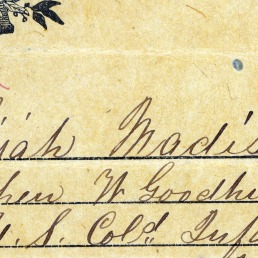 iah Madis
hen W Goodhu
U. S. Cold Inf